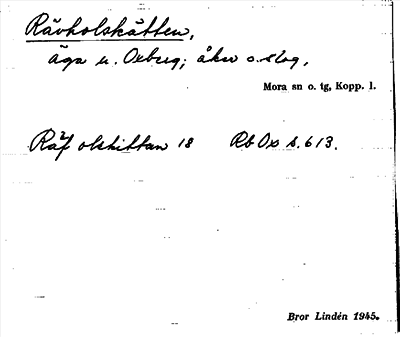 Rävholskåtten,
äga u. Oxberg; åker o. slog,
Mora sn o. tg, Kopp. l.
Räf olskittan 18 Rb Ox s. 613.
Bror Lindén 1945.